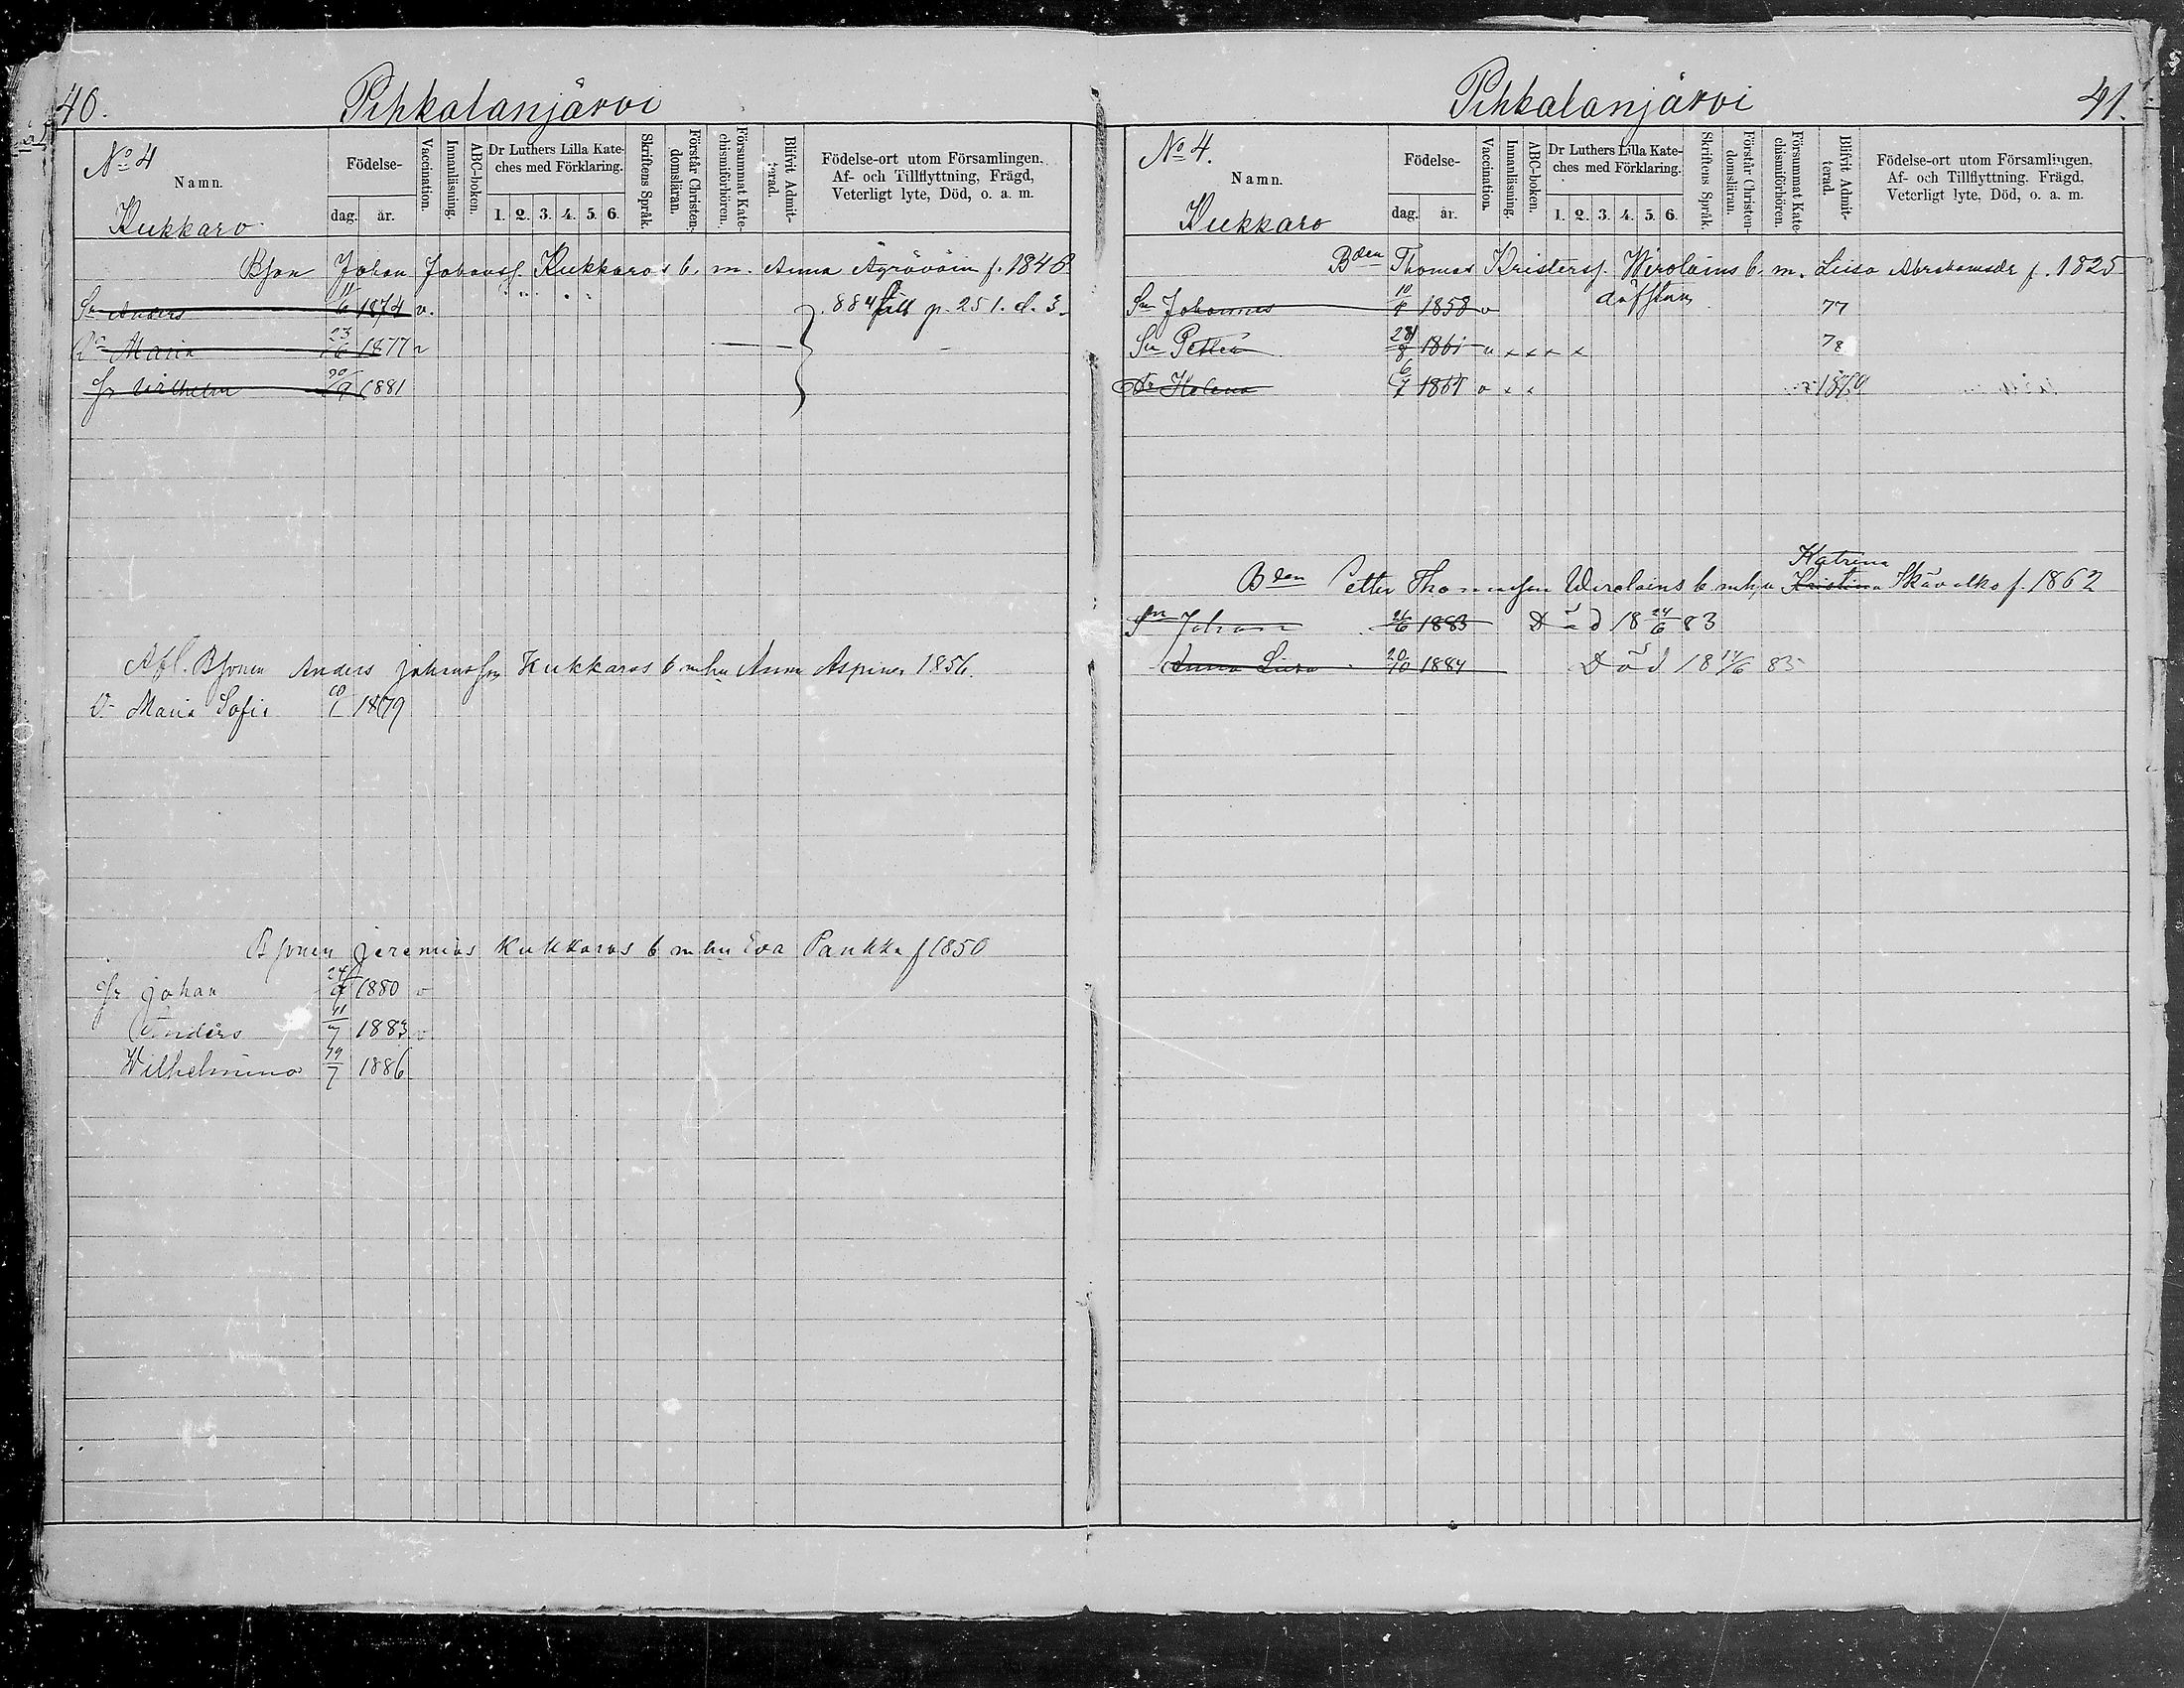 40.
Pihkalanjärvi
No 4
Namn.
Kukkaro
Födelse-
dag. år.
Vaccination.
Innanläsning.
ABC-boken.
Dr Luthers Lilla Kate-
ches med Förklaring.
1. 2. 3. 4. 5. 6.
Skriftens Språk.
Förstår Christen-
domsläran.
Försummat Kate-
chismiförhören.
Blifvit Admit-
terad.
Födelse-ort utom Församlingen.
Af- och Tillflyttning, Frägd,
Veterligt lyte, Död, o. a. m.
Bson Johan Johanss. Kukkaros b. m. Anna Ägräväin f. 1848
Sn Anders 11/6 1874 v. 884 p. 251. d. 3.
Dr Maria 23/6 1877 v
Sn Vilhelm 30/9 1881
Afl. Bsonen Anders Johansson Kukkaros b m hu Anna Aspinen 1856.
D. Maria Sofia 10/1 1879
Bsonen Jeremias Kukkaros b m hu Eva Paukku f 1850
Sn Johan 24/9 1880 v
Anders 11/7 1883 v
Wilhelmina 19/7 1886
Pihkalanjärvi
41.
No 4.
Namn.
Kukkaro
Födelse-
dag. år.
Vaccination.
Innanläsning.
ABC-boken.
Dr Luthers Lilla Kate-
ches med Förklaring.
1. 2. 3. 4. 5. 6.
Skriftens Språk.
Förstår Christen-
domsläran.
Försummat Kate-
chismiförhören.
Blifvit Admit-
terad.
Födelse-ort utom Församlingen.
Af- och Tillflyttning. Frägd.
Veterligt lyte, Död, o. a. m.
Bden Thomas Kristerss. Wirolains b. m. Liisa Abrahamsdr f. 1825
Sn Johannes 10/4 1858 v döfstum 77
Sn Petter 28/8 1861 v x x x x 78
Dr Helena 6/7 1864 v x x 1879
Katrina
Bden Petter Thomasson Wirolains b m hu Kristina Skävalko f. 1862
Sn Johan 1883 Död 18 24/6 83
Anna Liisa 20/10 1884 Död 18 14/6 85